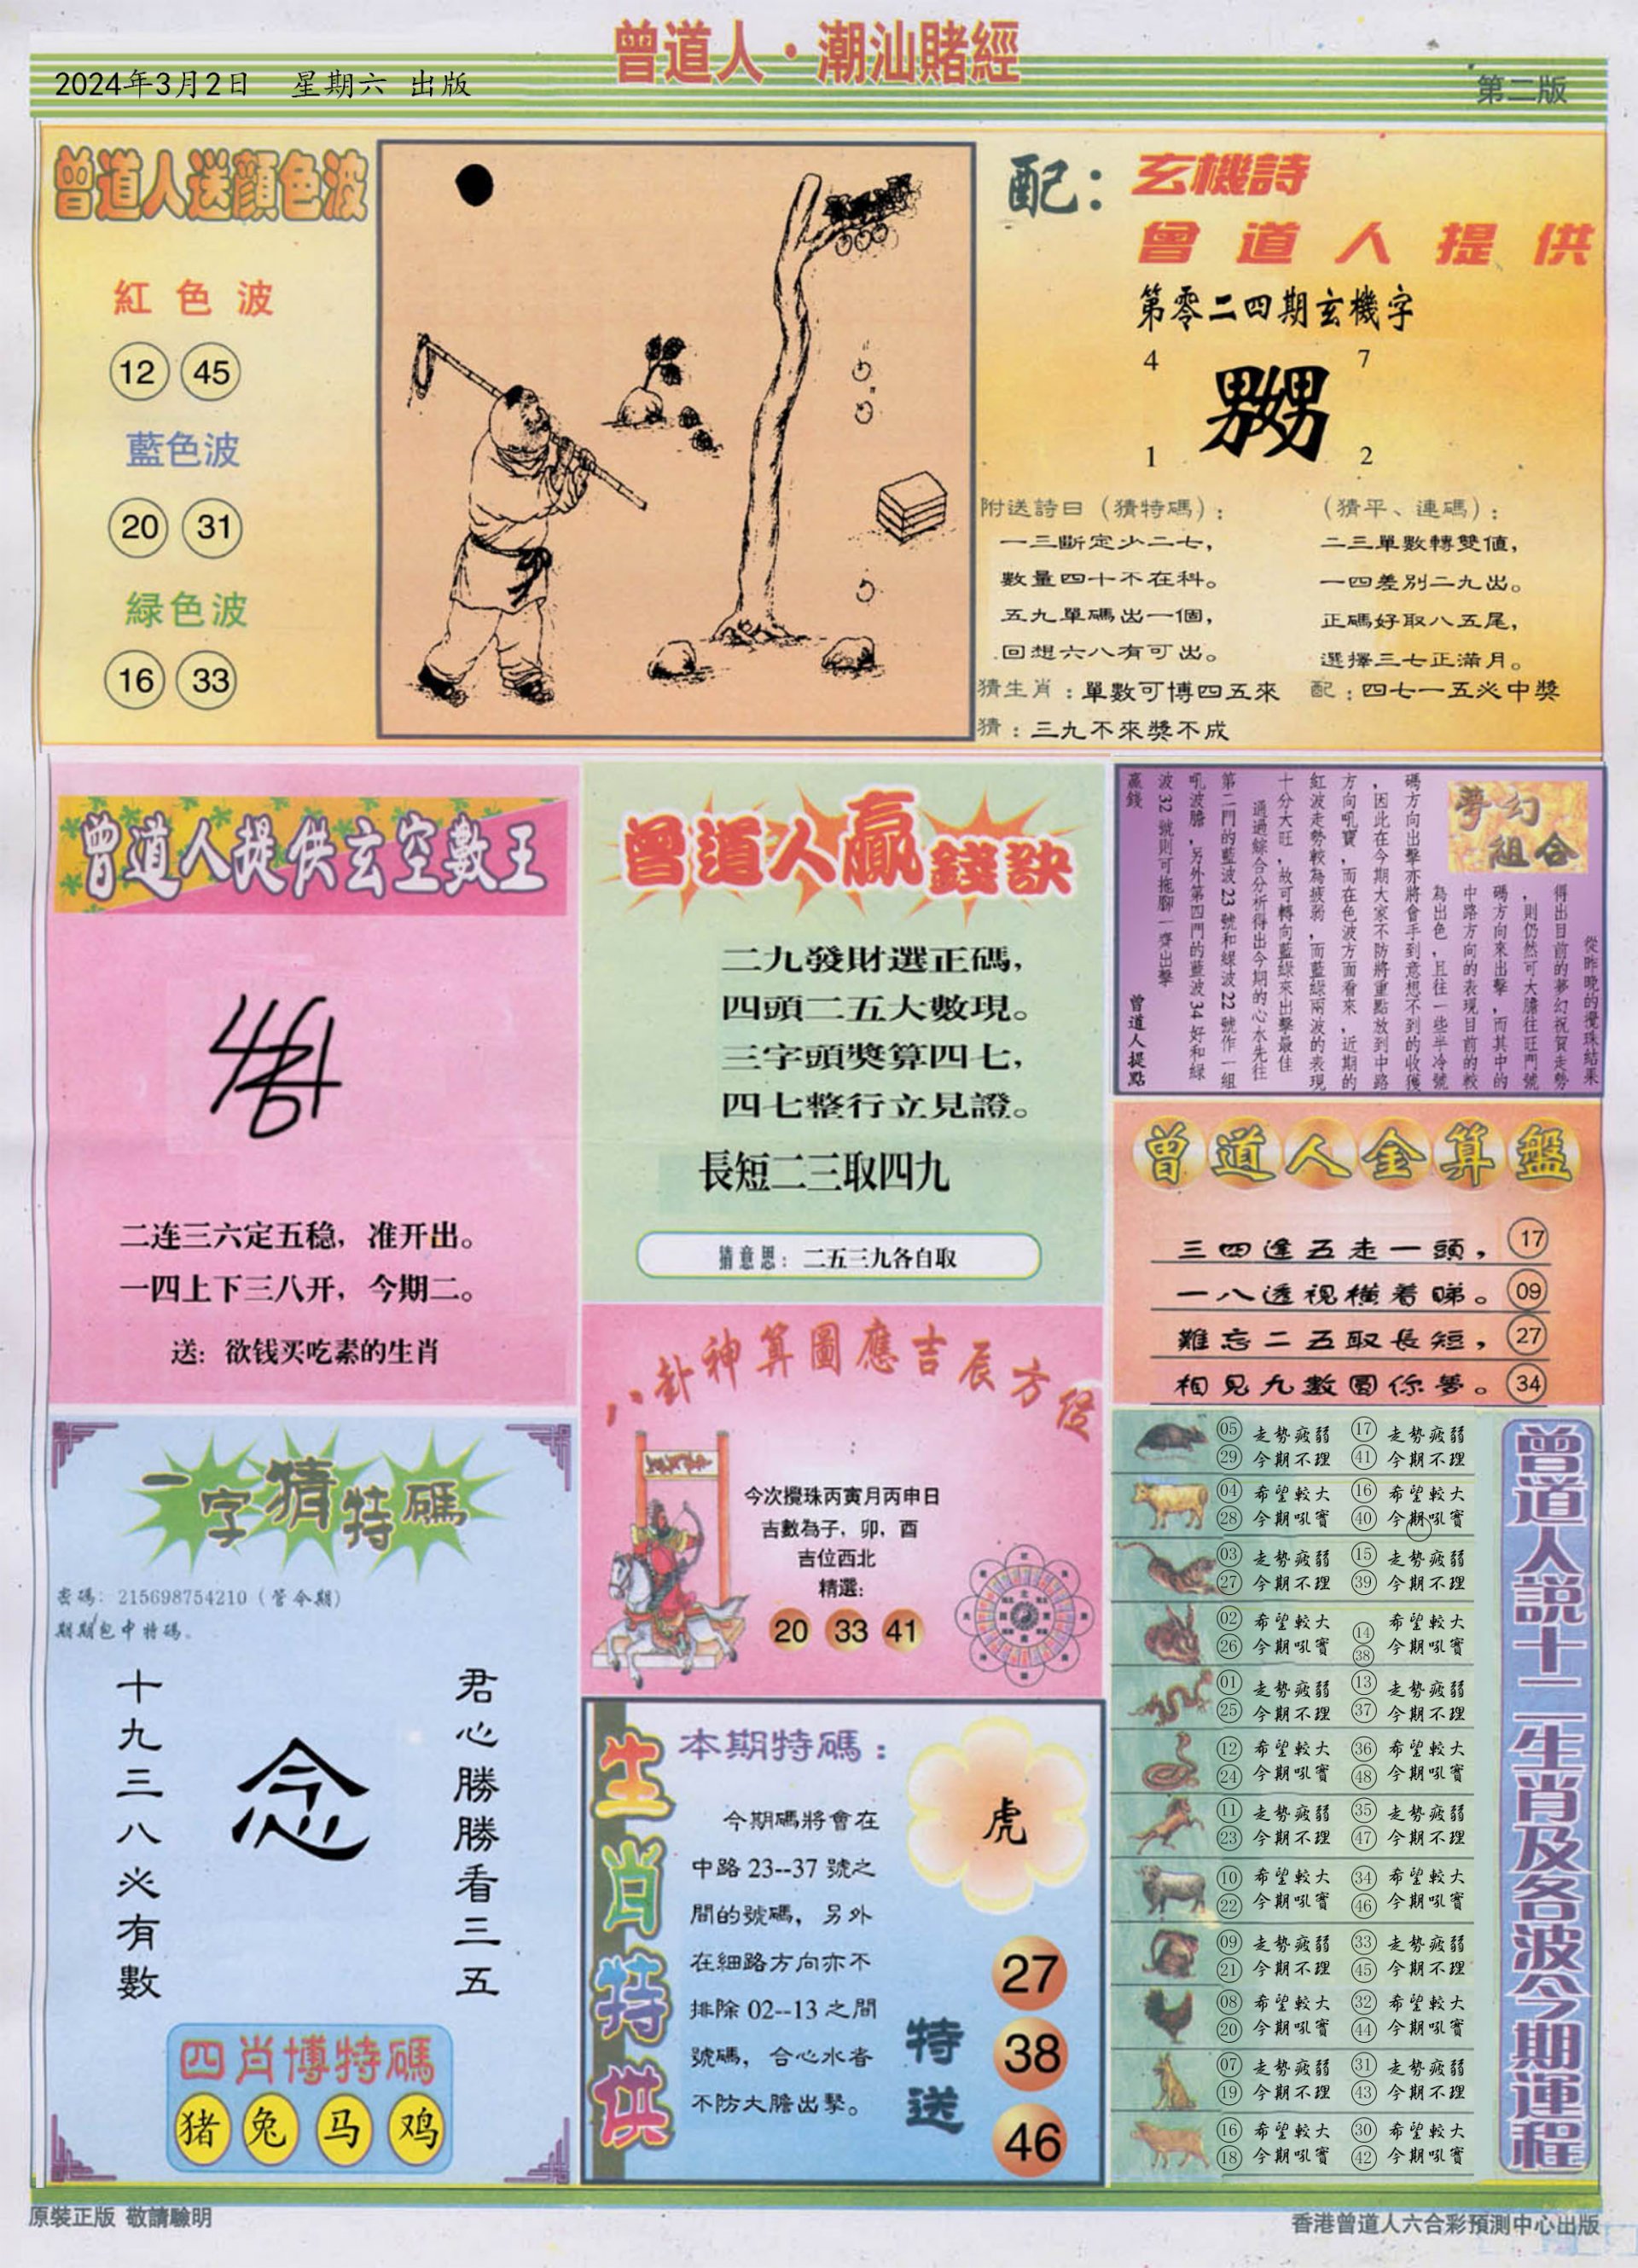 曾道人·潮汕賭經
2024年3月2日 星期六 出版
第二版
曾道人送顏色波
紅色波
12 45
藍色波
20 31
緑色波
16 33
配：
玄機詩
曾道人提供
第零二四期玄機字
4 7
嬲
1 2
附送詩曰（猜特碼）：
一三斷定少二七，
數量四十不在科。
五九單碼出一個，
回想六八有可出。
（猜平、連碼）：
二三單數轉雙值，
一四差別二九出。
正碼好取八五尾，
選擇三七正滿月。
猜生肖：單數可博四五來
配：四七一五必中獎
猜：三九不來獎不成
曾道人提供玄空數王
二连三六定五稳，准开出。
一四上下三八开，今期二。
送：欲钱买吃素的生肖
曾道人贏錢訣
二九發財選正碼，
四頭二五大數現。
三字頭獎算四七，
四七整行立見證。
長短二三取四九
猜意思：二五三九各自取
夢幻
組合
從昨晚的攪珠結果
得出目前的夢幻祝賀走勢
，則仍然可大膽往旺門號
碼方向來出擊，而其中的
中路方向的表現目前的較
為出色，且往一些半冷號
碼方向出擊亦將會手到意想不到的收獲
，因此在今期大家不防將重點放到中路
方向吼寶，而在色波方面看來，近期的
紅波走勢較為疲弱，而藍綠兩波的表現
十分大旺，故可轉向藍綠來出擊最佳
通過綜合分析得出今期的心水先往
第二門的藍波23號和綠波22號作一組
吼波膽，另外第四門的藍波34好和綠
波32號則可拖腳一齊出擊
贏錢
曾道人提點
曾道人金算盤
三四逢五走一頭， 17
一八透視橫着睇。 09
難忘二五取長短， 27
相見九數圓你夢。 34
八卦神算圖應吉辰方位
今次攪珠丙寅月丙申日
吉數為子，卯，酉
吉位西北
精選：
20 33 41
一字猜特碼
密碼：215698754210（管今期）
期期包中特碼。
君心勝勝看三五
念
十九三八必有數
四肖博特碼
猪 兔 马 鸡
生肖特供
本期特碼：
虎
今期碼將會在
中路23--37號之
間的號碼，另外
在細路方向亦不
排除02--13之間
號碼，合心水者
不防大膽出擊。
特送
27
38
46
曾道人說十二生肖及各波今期運程
05 走勢疲弱 17 走勢疲弱
29 今期不理 41 今期不理
04 希望較大 16 希望較大
28 今期吼寳 40 今期吼寳
03 走勢疲弱 15 走勢疲弱
27 今期不理 39 今期不理
02 希望較大 14 希望較大
26 今期吼寳 38 今期吼寳
01 走勢疲弱 13 走勢疲弱
25 今期不理 37 今期不理
12 希望較大 36 希望較大
24 今期吼寳 48 今期吼寳
11 走勢疲弱 35 走勢疲弱
23 今期不理 47 今期不理
10 希望較大 34 希望較大
22 今期吼寳 46 今期吼寳
09 走勢疲弱 33 走勢疲弱
21 今期不理 45 今期不理
08 希望較大 32 希望較大
20 今期吼寳 44 今期吼寳
07 走勢疲弱 31 走勢疲弱
19 今期不理 43 今期不理
16 希望較大 30 希望較大
18 今期吼寳 42 今期吼寳
原裝正版 敬請驗明
香港曾道人六合彩預測中心出版